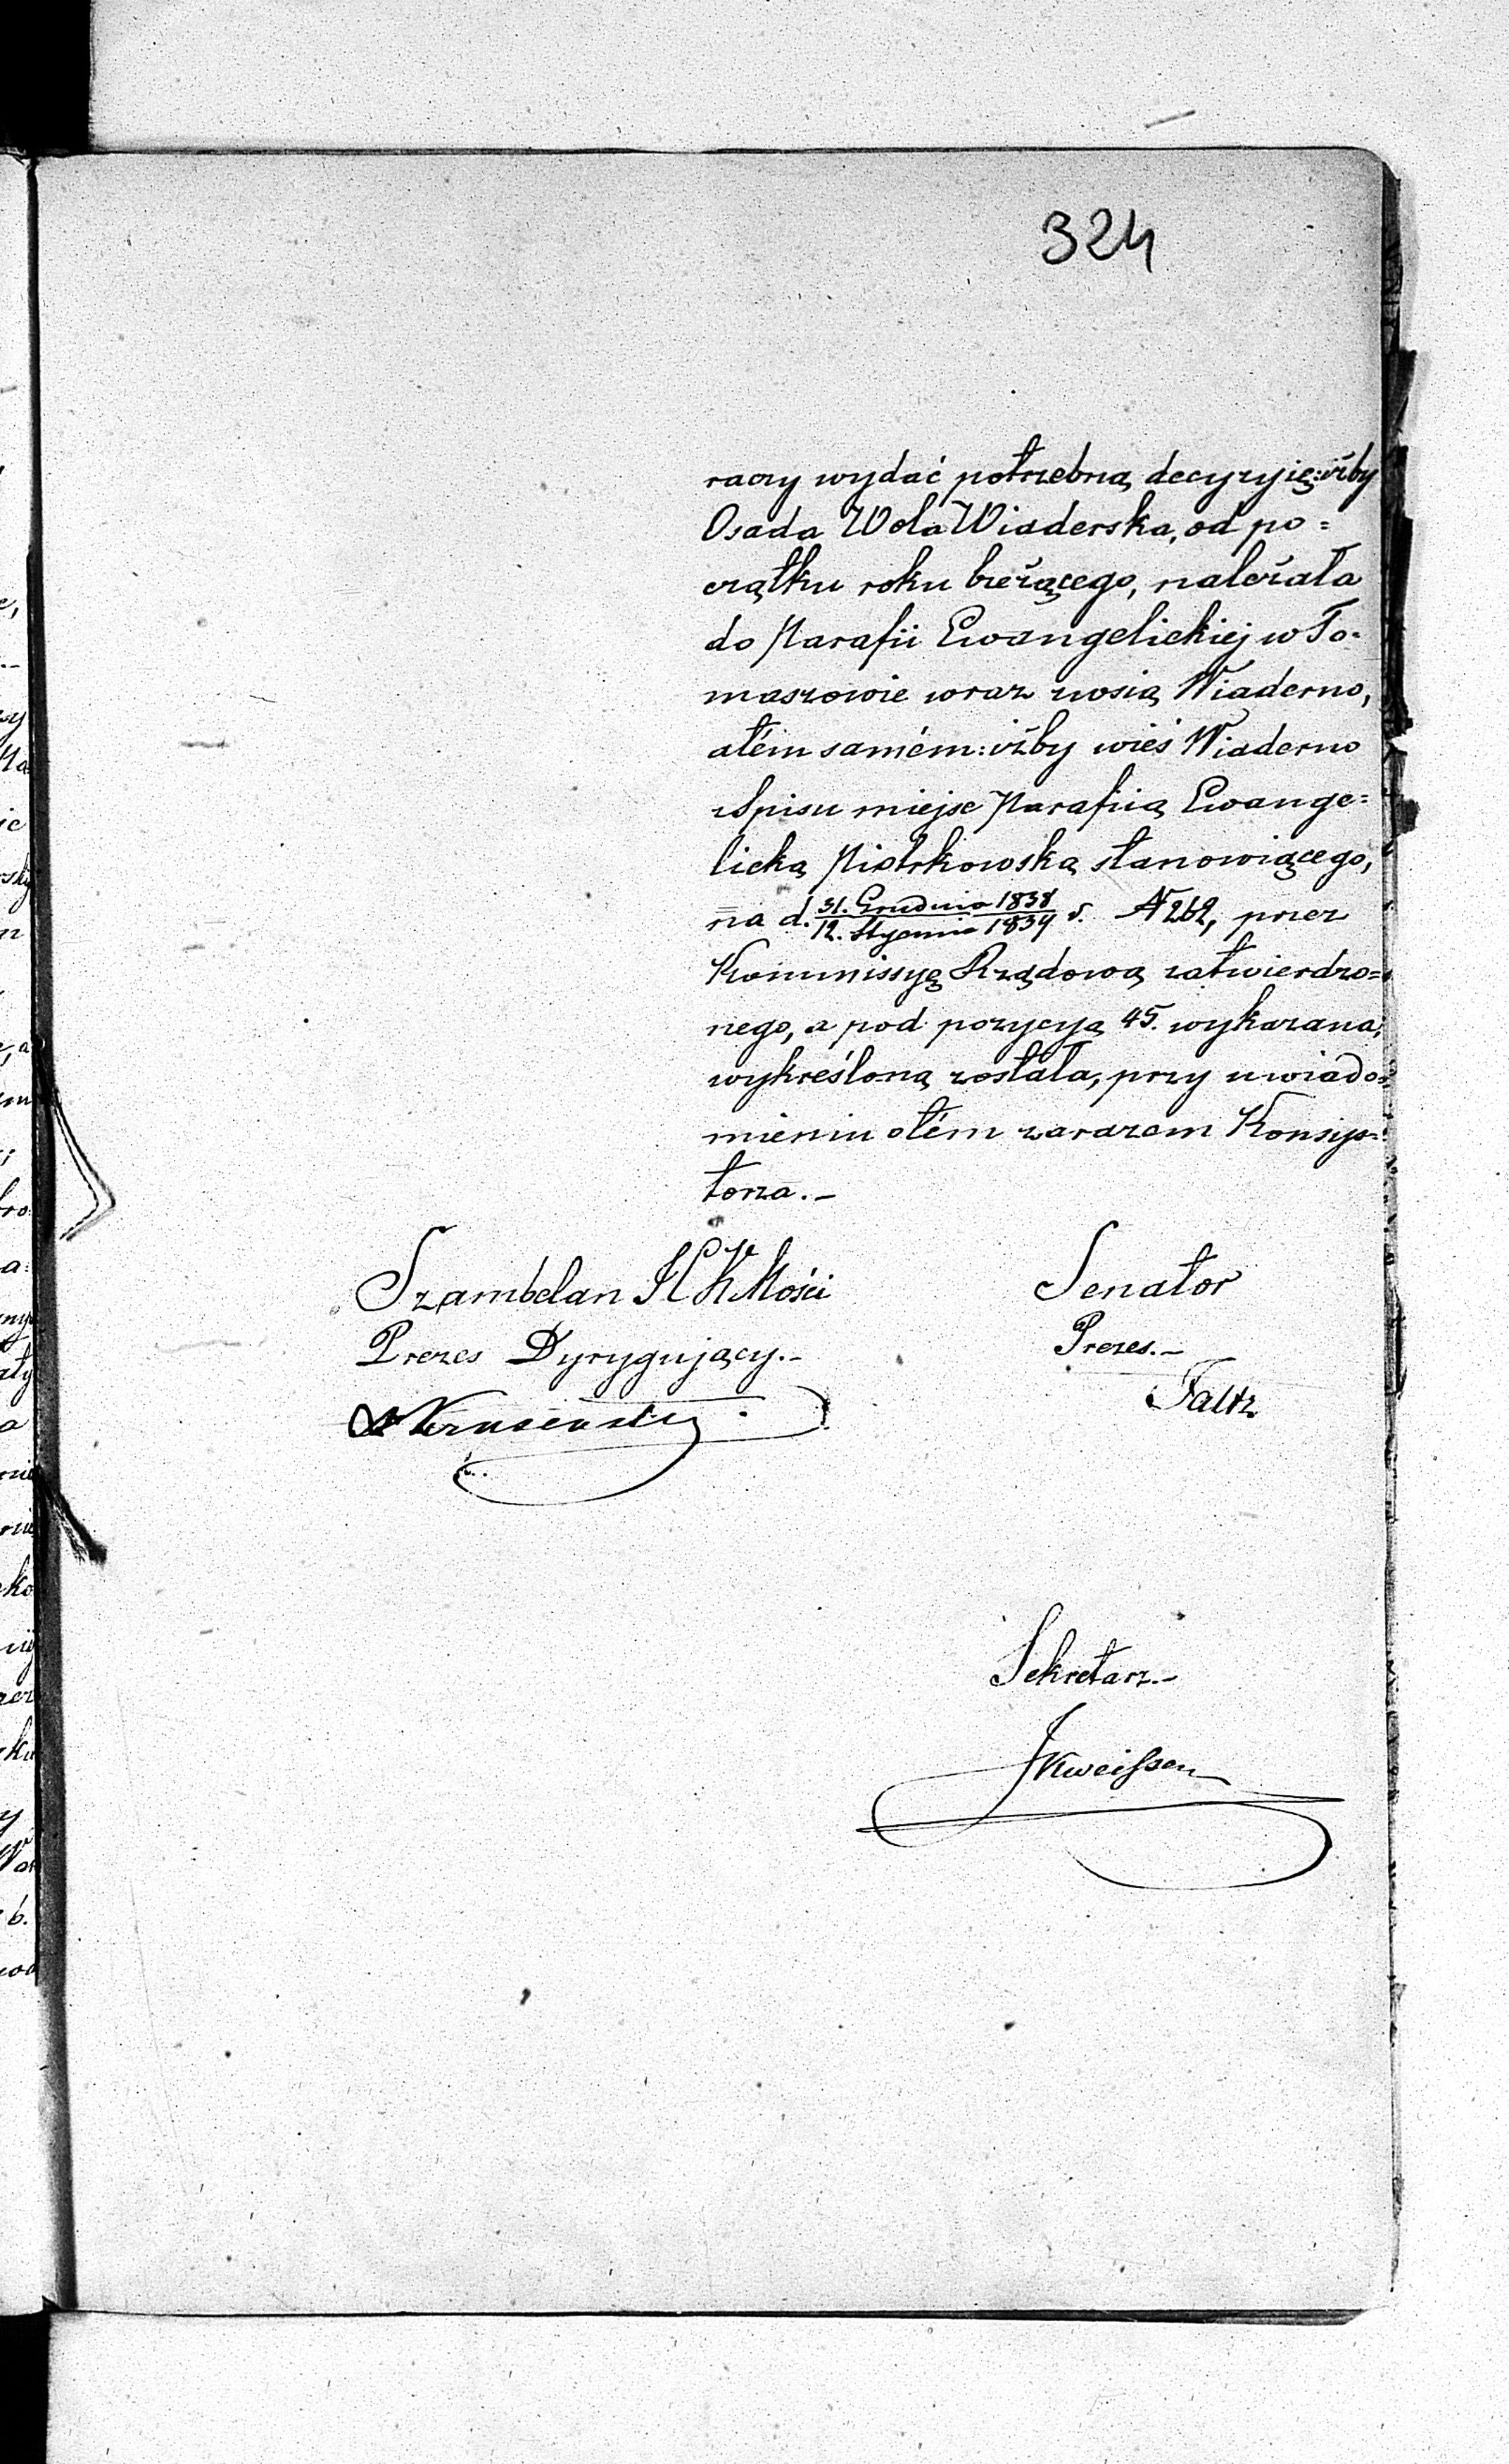 324
raczy wydać potrzebną decyzyię: iżby
Osada Wola Wiaderska, od po=
czątku roku bieżącego, należała
do Parafii Ewangelickiej w To=
maszowie wraz zwsią Wiaderno,
atém samém: iżby wieś Wiaderno
zSpisu miejsc Parafiią Ewange=
licką Piotrkowską stanowiącego,
na d. 31. Grudnia 1838 / 12. Stycznia 1839 r. N 262, przez
Kommissyę Rządową zatwierdzo=
nego, a pod pozycyą 45. wykazana,
wykreśloną została, przy uwiado=
mieniu otém zarazem Konsys=
torza.-
Szambelan JCK Mości
Prezes Dyrygujący.-
Senator
Prezes.-
Faltz
Sekretarz.-